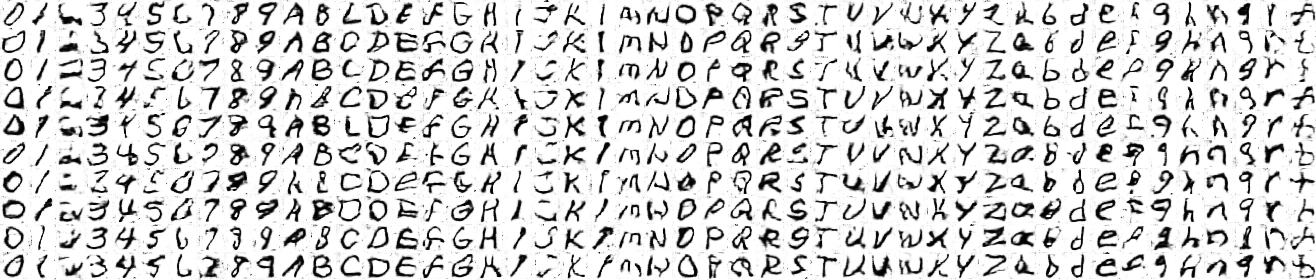 0 1 3 4 5 6 7 8 9 A B L D E F G H I J K I m N O P Q R S T U V W X Y Z a b d e f g h n q r t
0 1 3 4 5 6 7 8 9 A B C D E F G H I J K I m N O P Q R S T U V W X Y Z a b d e f g h n q r t
0 1 3 4 5 6 7 8 9 A B C D E F G H I J K I m N O P Q R S T U V W X Y Z a b d e f g h n q r t
0 1 3 4 5 6 7 8 9 A B C D E F G H I J K I m N D P Q R S T U V W X Y Z a b d e f g h n q r t
0 1 3 4 5 6 7 8 9 A B L D E F G H I J K I m N O P Q R S T U V W X Y Z a b d e f g h n q r t
0 1 3 4 5 6 7 8 9 A B C D E F G H I J K I m N O P Q R S T U V W X Y Z a b d e f g h n q r t
0 1 3 4 5 6 7 8 9 A B C D E F G H I J K I m N O P Q R S T U V W X Y Z a b d e f g h n q r t
0 1 3 4 5 6 7 8 9 A B D D E F G H I J K I m N O P Q R S T U V W X Y Z a b d e f g h n q r t
0 1 3 4 5 6 7 8 9 A B C D E F G H I J K I m N O P Q R S T U V W X Y Z a b d e f g h n q r t
0 1 3 4 5 6 2 8 9 A B C D E F G H I J K I m N O P Q R S T U V W X Y Z a b d e f g h n q r t